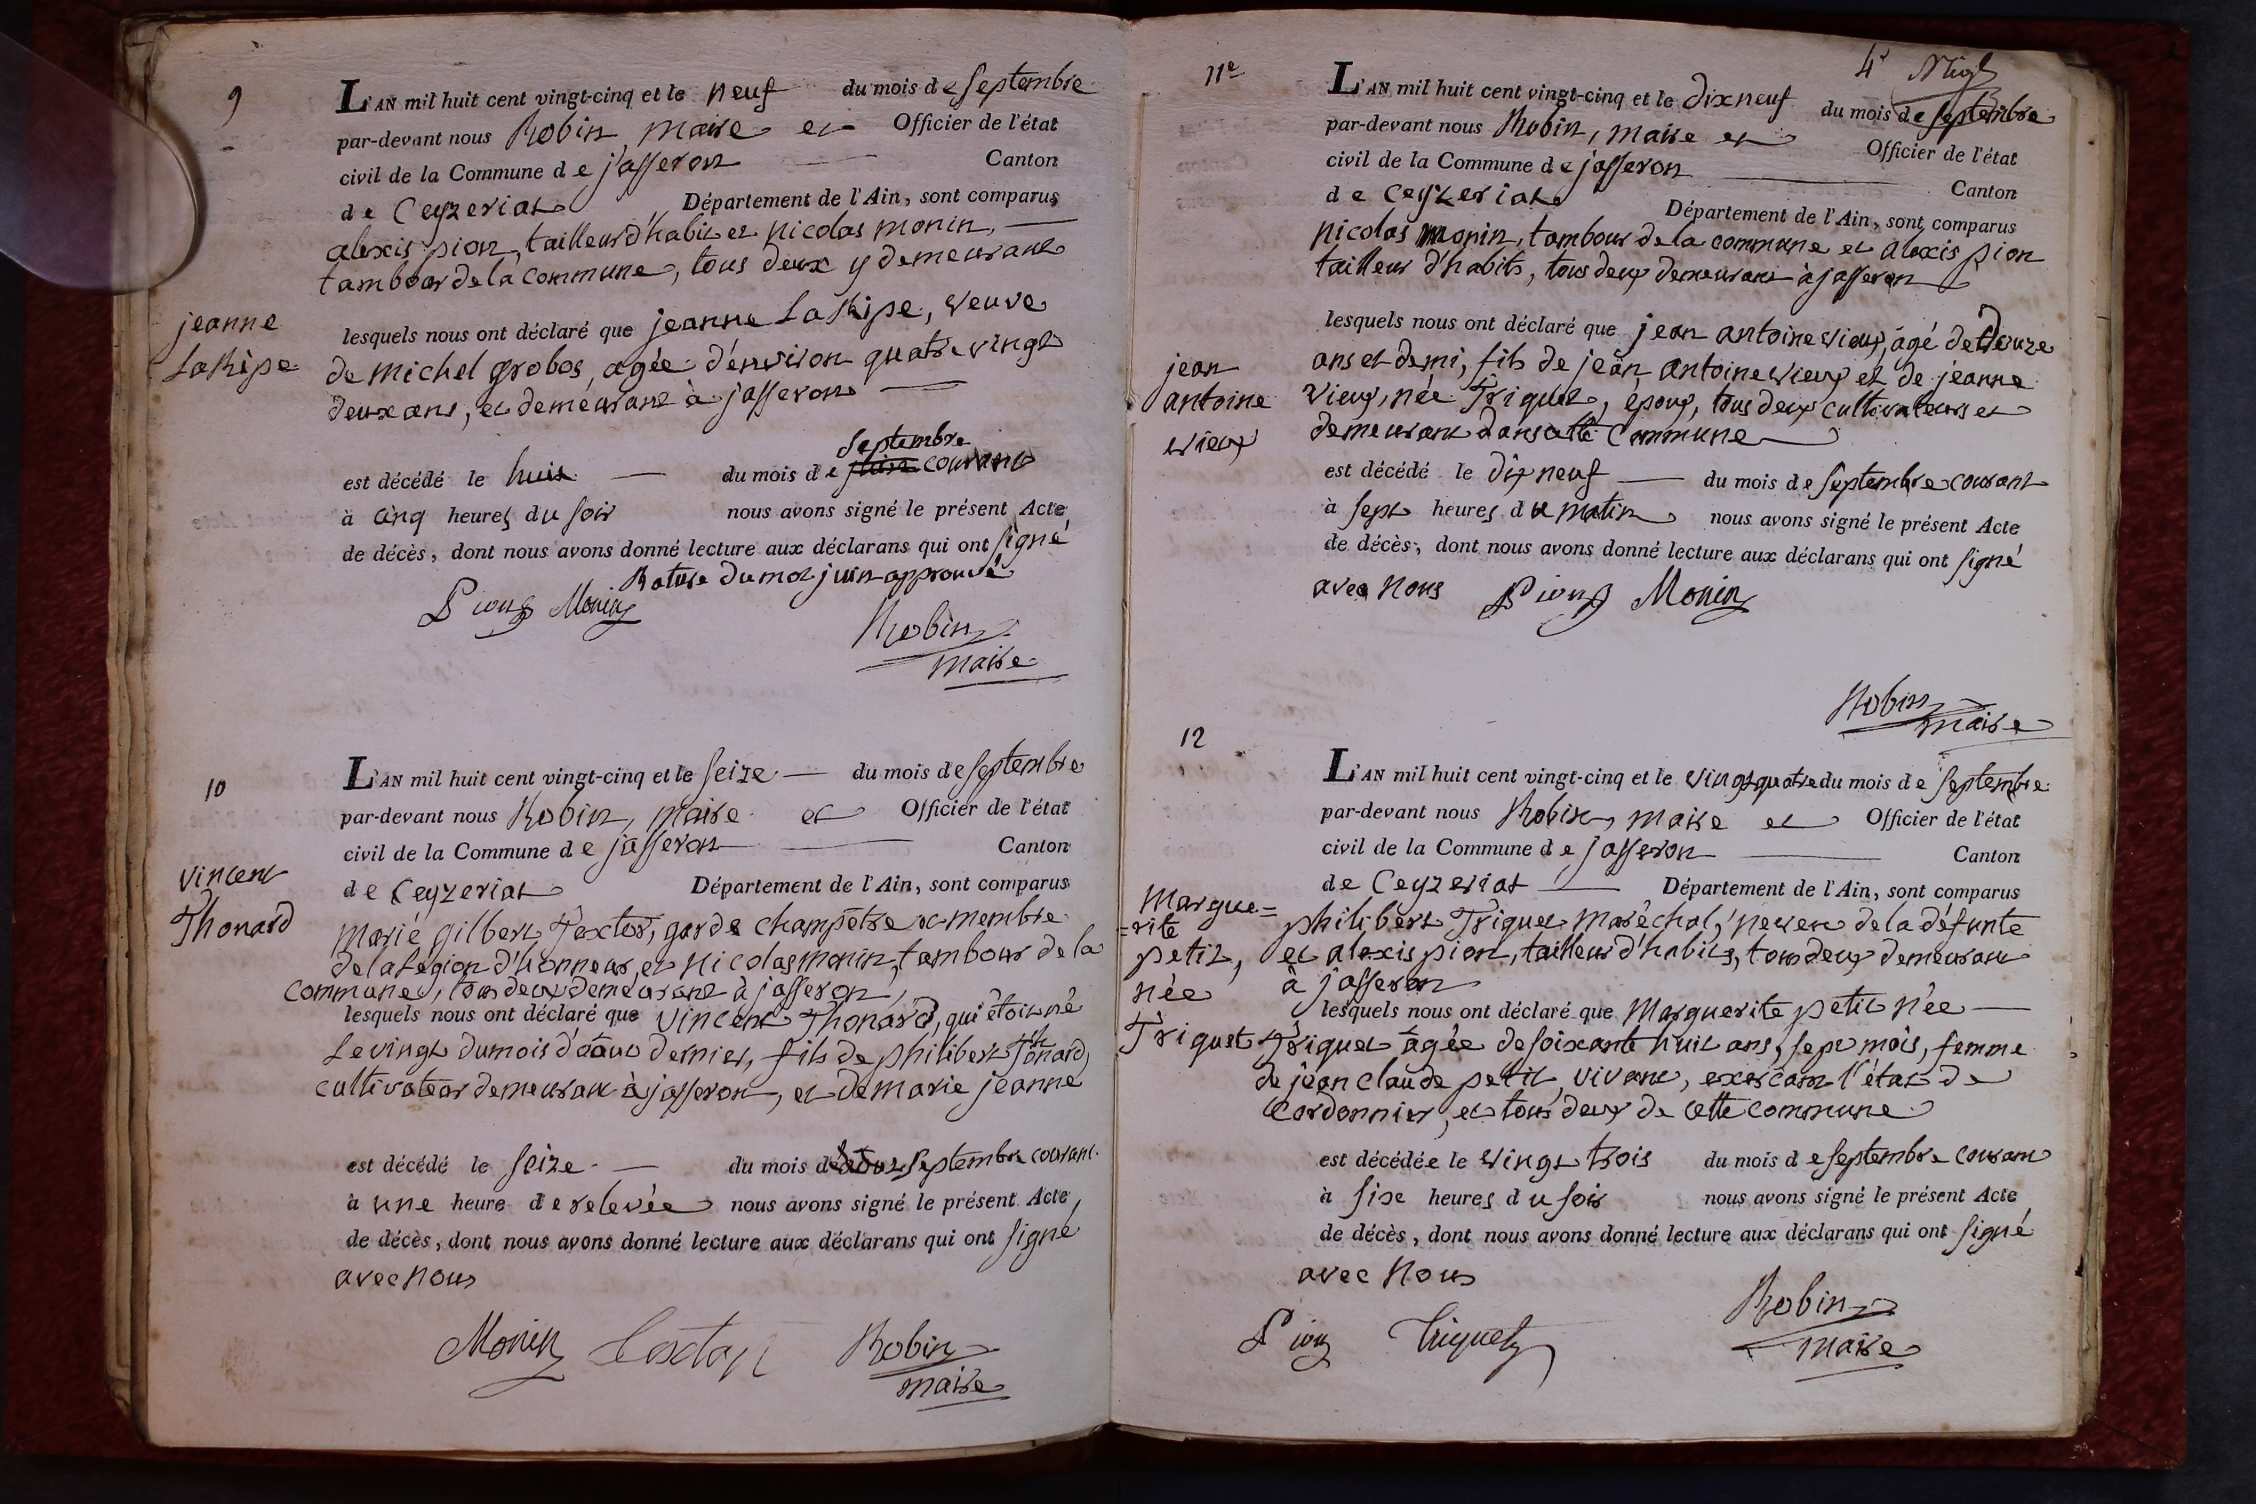 9
L'AN mil huit cent vingt-cinq et le neuf du mois de septembre
par-devant nous Robin maire et Officier de l'état
civil de la Commune de jasseron Canton
de Ceyzeriat Département de l'Ain, sont comparus
alexis pion, tailleur d'habit et nicolas monin,
tambour de la commune, tous deux y demeurant
jeanne
LaRipe
lesquels nous ont déclaré que jeanne LaRipe, veuve
de michel grobos, agée d'environ quatre vingt
deux ans, et demeurant à jasseron
septembre
est décédé le huit du mois de juin courant
à cinq heures du soir nous avons signé le présent Acte
de décès, dont nous avons donné lecture aux déclarans qui ont signé
Rature du mot juin approuvé
Pion Monin
Robin
maire
10
L'AN mil huit cent vingt-cinq et le seize du mois de septembre
par-devant nous Robin, maire et Officier de l'état
civil de la Commune de jasseron Canton
de Ceyzeriat Département de l'Ain, sont comparus
vincent
Thonard
marie gilbert Textor, garde champêtre membre
de la Legion d'honneur, et nicolas monin, tambour de la
commune, tous deux demeurant à jasseron,
lesquels nous ont déclaré que vincent Thonard, qui étoit né
Le vingt du mois d'aout dernier, fils de philibert Thonard
cultivateur demeurant à jasseron, et de marie jeanne
est décédé le seize du mois de septembre courant
à une heure de relevée nous avons signé le présent Acte,
de décès, dont nous avons donné lecture aux déclarans qui ont signé
avec nous
Monin Textor Robin
maire
4e
11e
L'AN mil huit cent vingt-cinq et le dixneuf du mois de septembre
par-devant nous Robin, maire et Officier de l'état
civil de la Commune de jasseron Canton
de Ceyzeriat Département de l'Ain, sont comparus
nicolas monin, tambour de la commune et alexis pion
tailleur d'habits, tous deux demeurant à jasseron
jean
antoine
vieux
lesquels nous ont déclaré que jean antoine vieux, âgé de douze
ans et demi, fils de jean antoine vieux et de jeanne
vieux, née Triquet, epoux, tous deux cultivateurs et
demeurant dans cette commune
est décédé le dix neuf du mois de septembre courant
à sept heures du matin nous avons signé le présent Acte
de décès, dont nous avons donné lecture aux déclarans qui ont signé
avec nous Pion Monin
Robin
maire
12
L'AN mil huit cent vingt-cinq et le vingt quatre du mois de septembre
par-devant nous Robin, maire et Officier de l'état
civil de la Commune de jasseron Canton
de Ceyzeriat Département de l'Ain, sont comparus
Margue=
=rite
petit,
née
Triquet
philibert Triquet maréchal, neveu de la défunte
et alexis pion, tailleur d'habits, tous deux demeurant
à jasseron
lesquels nous ont déclaré que Marguerite petit née
Triquet âgée de soixante huit ans, sept mois, femme
de jean claude petit, vivant, exerçant l'état de
Cordonnier, et tous deux de cette commune
est décédée le vingt trois du mois de septembre courant
à six heures du soir nous avons signé le présent Acte
de décès, dont nous avons donné lecture aux déclarans qui ont signé
avec nous
Pion Triquet Robin
maire